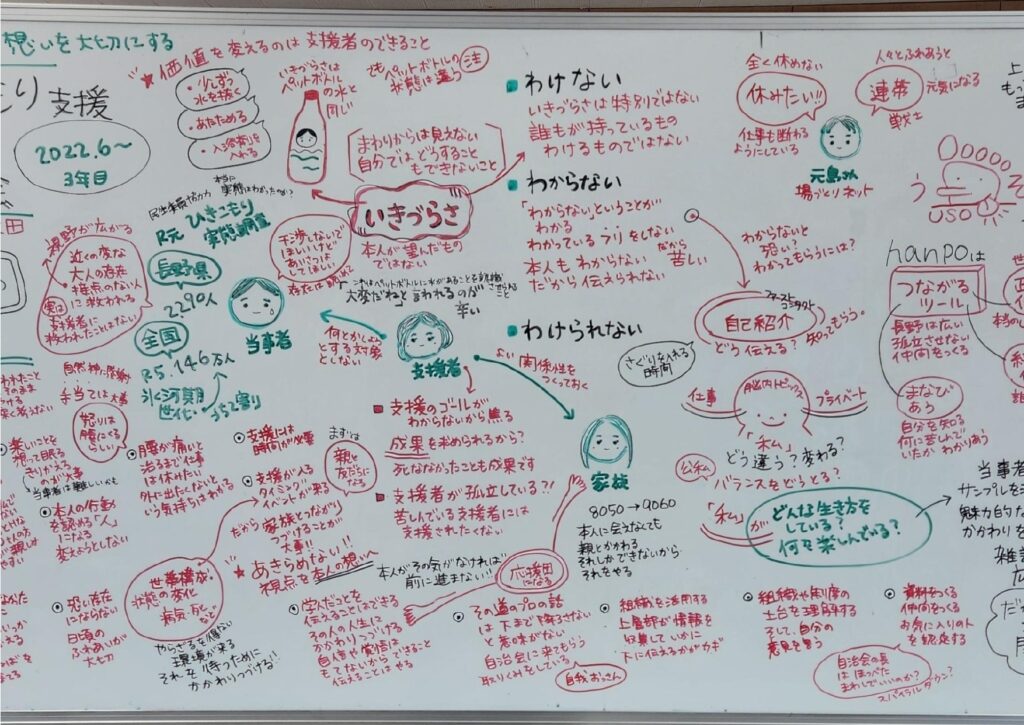 想いを大切にする
支援
2022.6〜
3年目
★価値を変えるのは支援者のできること
少しずつ
水を抜く
あたためる
入浴剤を
入れる
いきづらさは
ペットボトル
の水と
同じ
でもペットボトルの
状態は違う
注
まわりからは見えない
自分ではどうすること
もできないこと
いきづらさ
本人が望んだもの
ではない
R元 ひきこもり
実態調査
長野県
2290人
全国
R5. 146万人
氷河期
世代
視野が広がる
近くの変な
大人の存在
接点のない人
に救われる
実は
支援者に
救われたことはない
干渉しないで
ほしいけど
あいさつは
してほしい
当事者
大変だねと言われるのが
辛い
支援者
何とかしよう
とする対象
としない
■わけない
いきづらさは特別ではない
誰もが持っているもの
わけるものではない
■わからない
「わからない」ということが
わかる
わかっているフリをしない
本人もわからない だから苦しい
だから伝えられない
■わけられない
よい関係性を
つくっておく
全く休めない
休みたい!!
仕事も断わる
ようにしている
人々とふれあうと
元気になる
連帯
元島さん
場づくりネット
わからないと
恐い?
わかってもらうには?
ファーストコンタクト
自己紹介
どう伝える? 知ってもらう。
さぐりを入れる
時間
仕事
脳内トピックス
プライベート
「私」
どう違う?変わる?
公私
バランスをどうとる?
「私」が
どんな生き方を
している?
何を楽しんでいる?
う
そ
USO
hanpoは
つながる
ツール
長野は広い
孤立させない
仲間をつくる
まなび
あう
自分を知る
何に苦しんで
いたかわかりあう
手当ては大事
怒りは
腰にくる
らしい
●腰が痛いと
治るまで仕事
は休みたい
外に出たくない
という気持ちはわかる
●本人の行動
を認める「人」
になる
変えようとしない
●支援には
時間が必要
●支援が入る
タイミング!!
イベントが来る
まずは
親と
友だちに
なる
だから家族とつながり
つづけることが
大事!!
★あきらめない!!
視点を本人の想いへ
世帯構成・
状態の変化
病気・死
など
やらざるを得ない
環境が来る
それを待つために
かかわりつづける!!
●恐い存在
にならない
日頃の
ふれあいが
大切
■支援のゴールが
わからないから焦る
成果を求められるから?
死ななかったことも成果です
■支援者が孤立している?!
苦しんでいる支援者には
支援されたくない
家族
8050→9060
本人に会えなくても
親とかかわる
それしかできないから
それをやる
本人がその気がなければ
前に進まない!!
応援団
になる
●学んだことを
伝えることはできる
その人の人生に
かかわりつづける
自信や覚悟は
もてないからできること
伝えることはやる
●その道のプロの話
は下まで降ろさない
と意味がない
自治会に来てもらう
取りくみをしている
自我おっさん
●組織を活用する
上層部が情報を
収集していかに
下に伝えるかがカギ
●組織や制度の
土台を理解する
そして、自分の
意見を言う
●資料をつくる
仲間をつくる
お気に入りの人
を認定する
自治会の長
はほっぺた
まわしでいいのか?
スパイラルダウン?
当事者
サンプルを
魅力的な
かかわりを